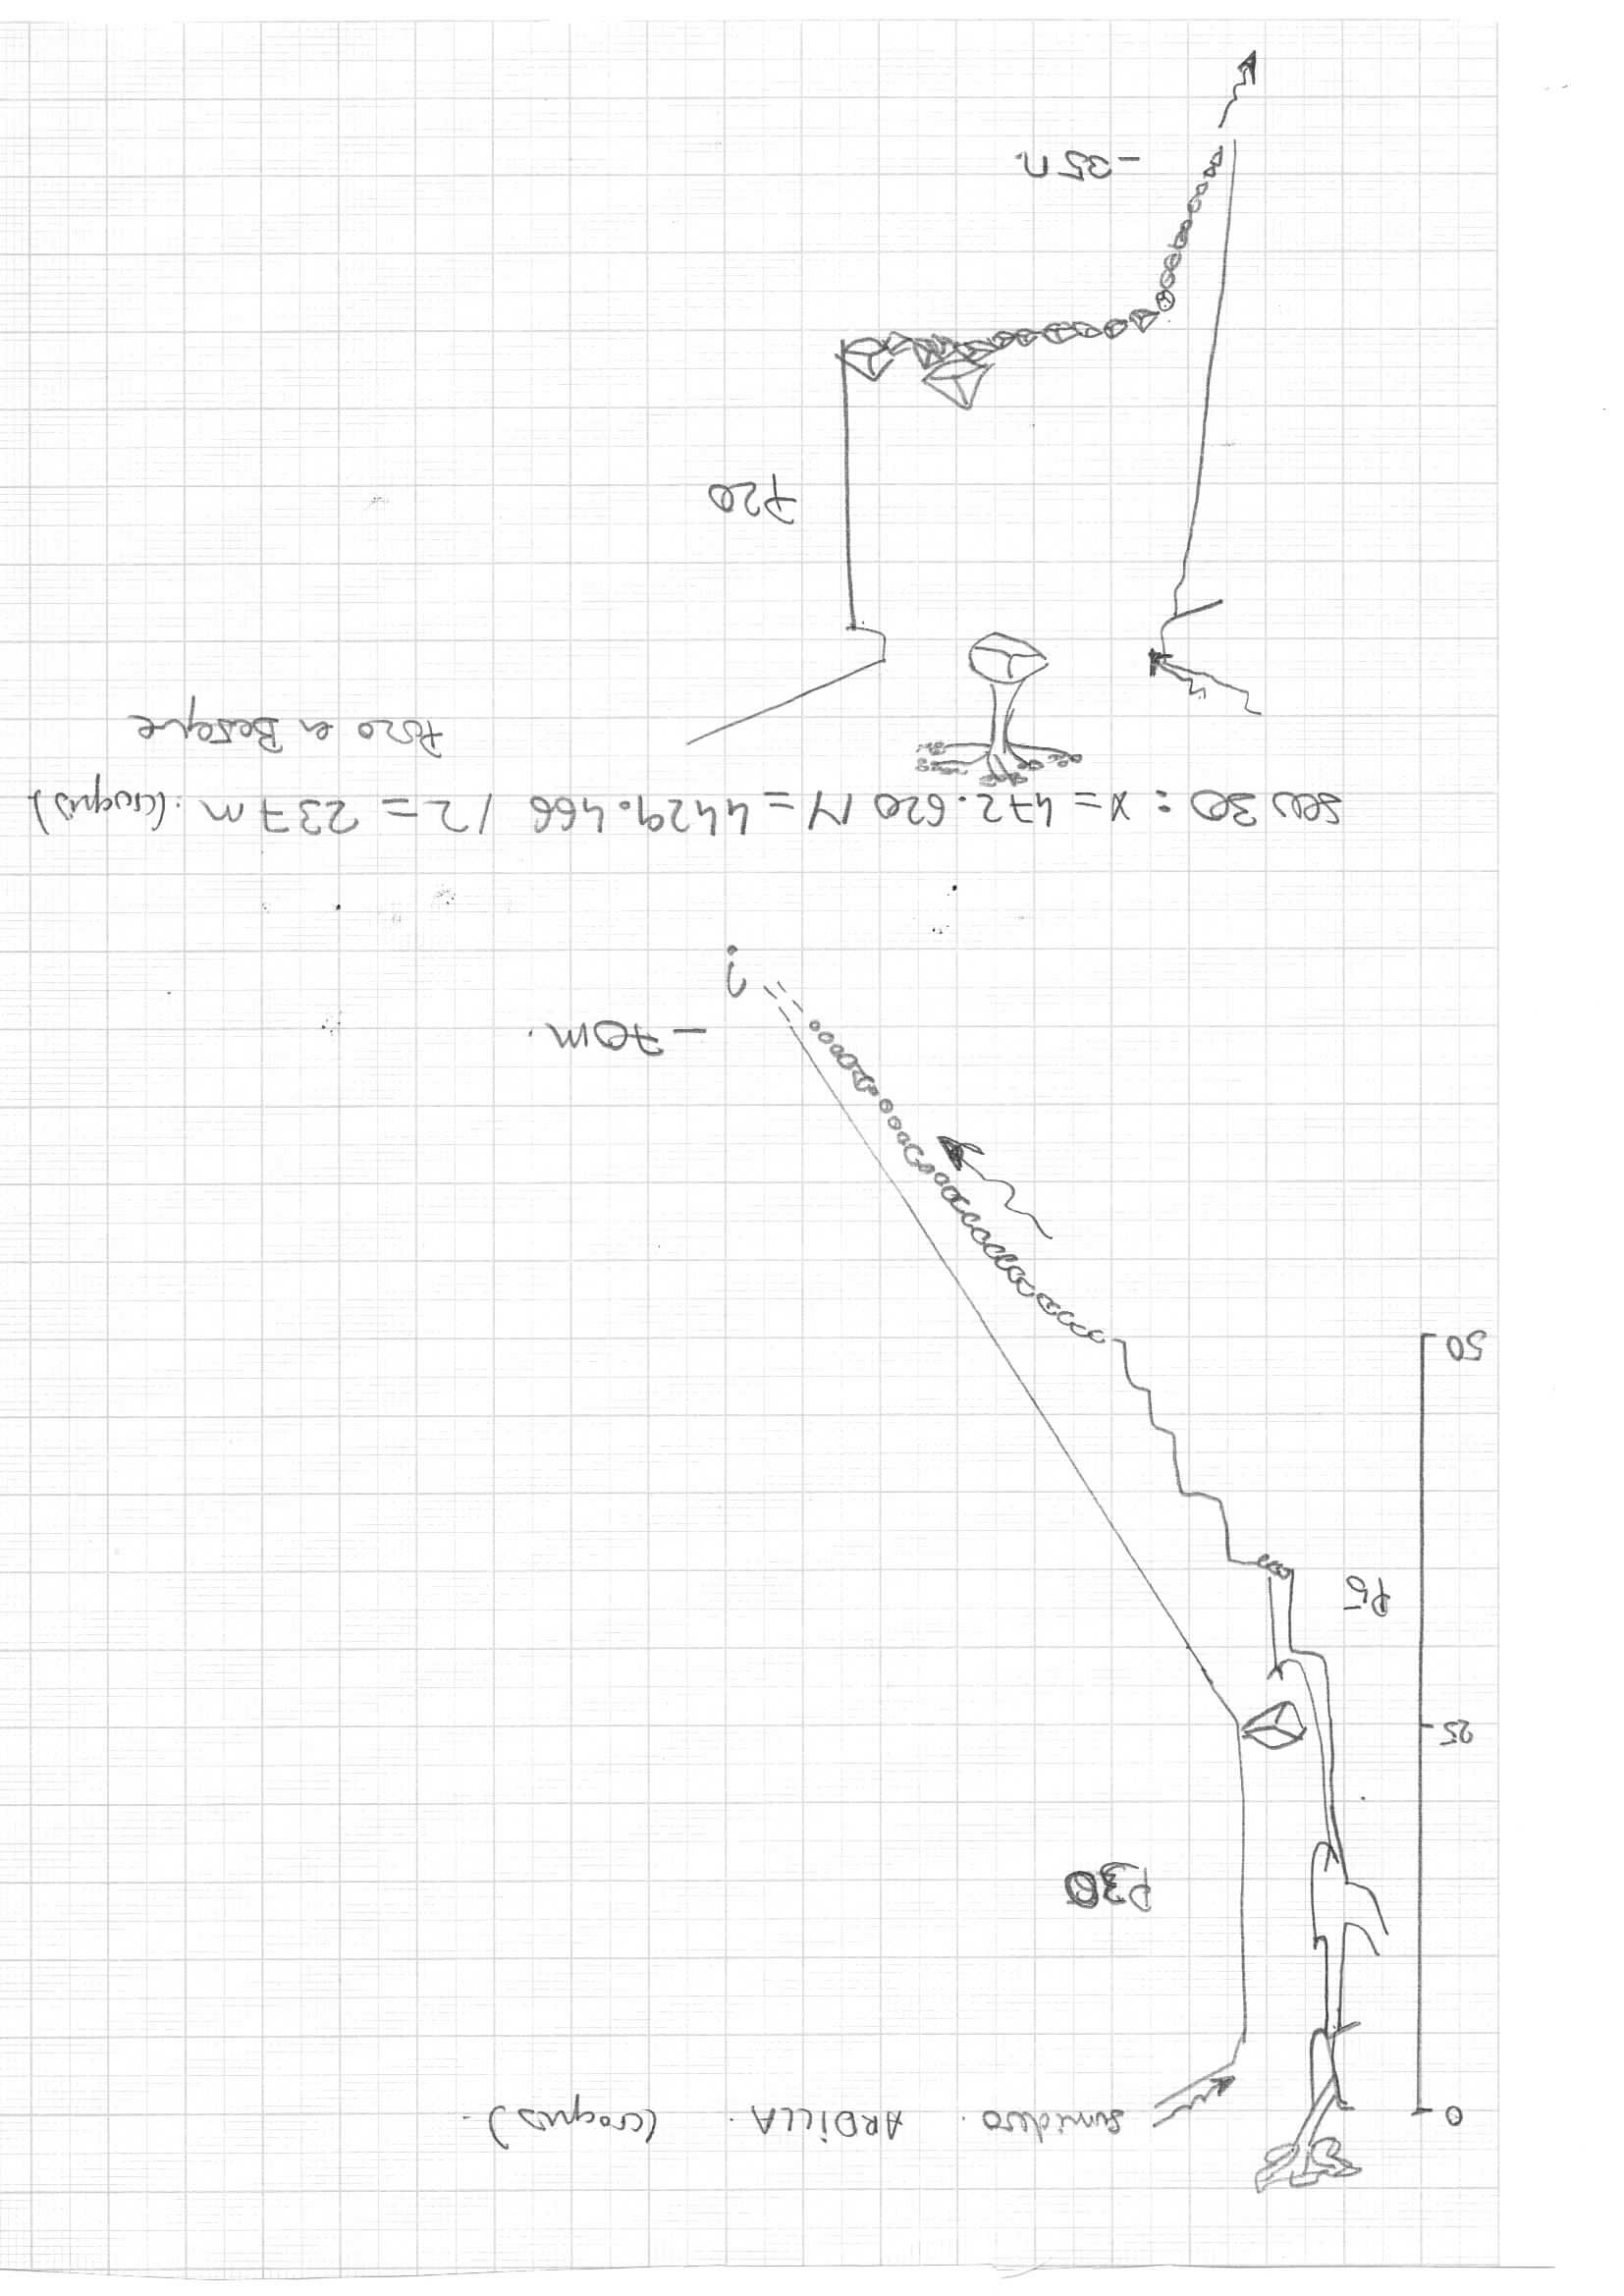 0
Sumidero. ARDILLA. (croquis).
P30
25
P5
50
- 70m.
?
30 : X= 472.620 / Y = 4429.466 / Z = 237 m. (croquis)
Pozo en Bosque
P20
-35 m